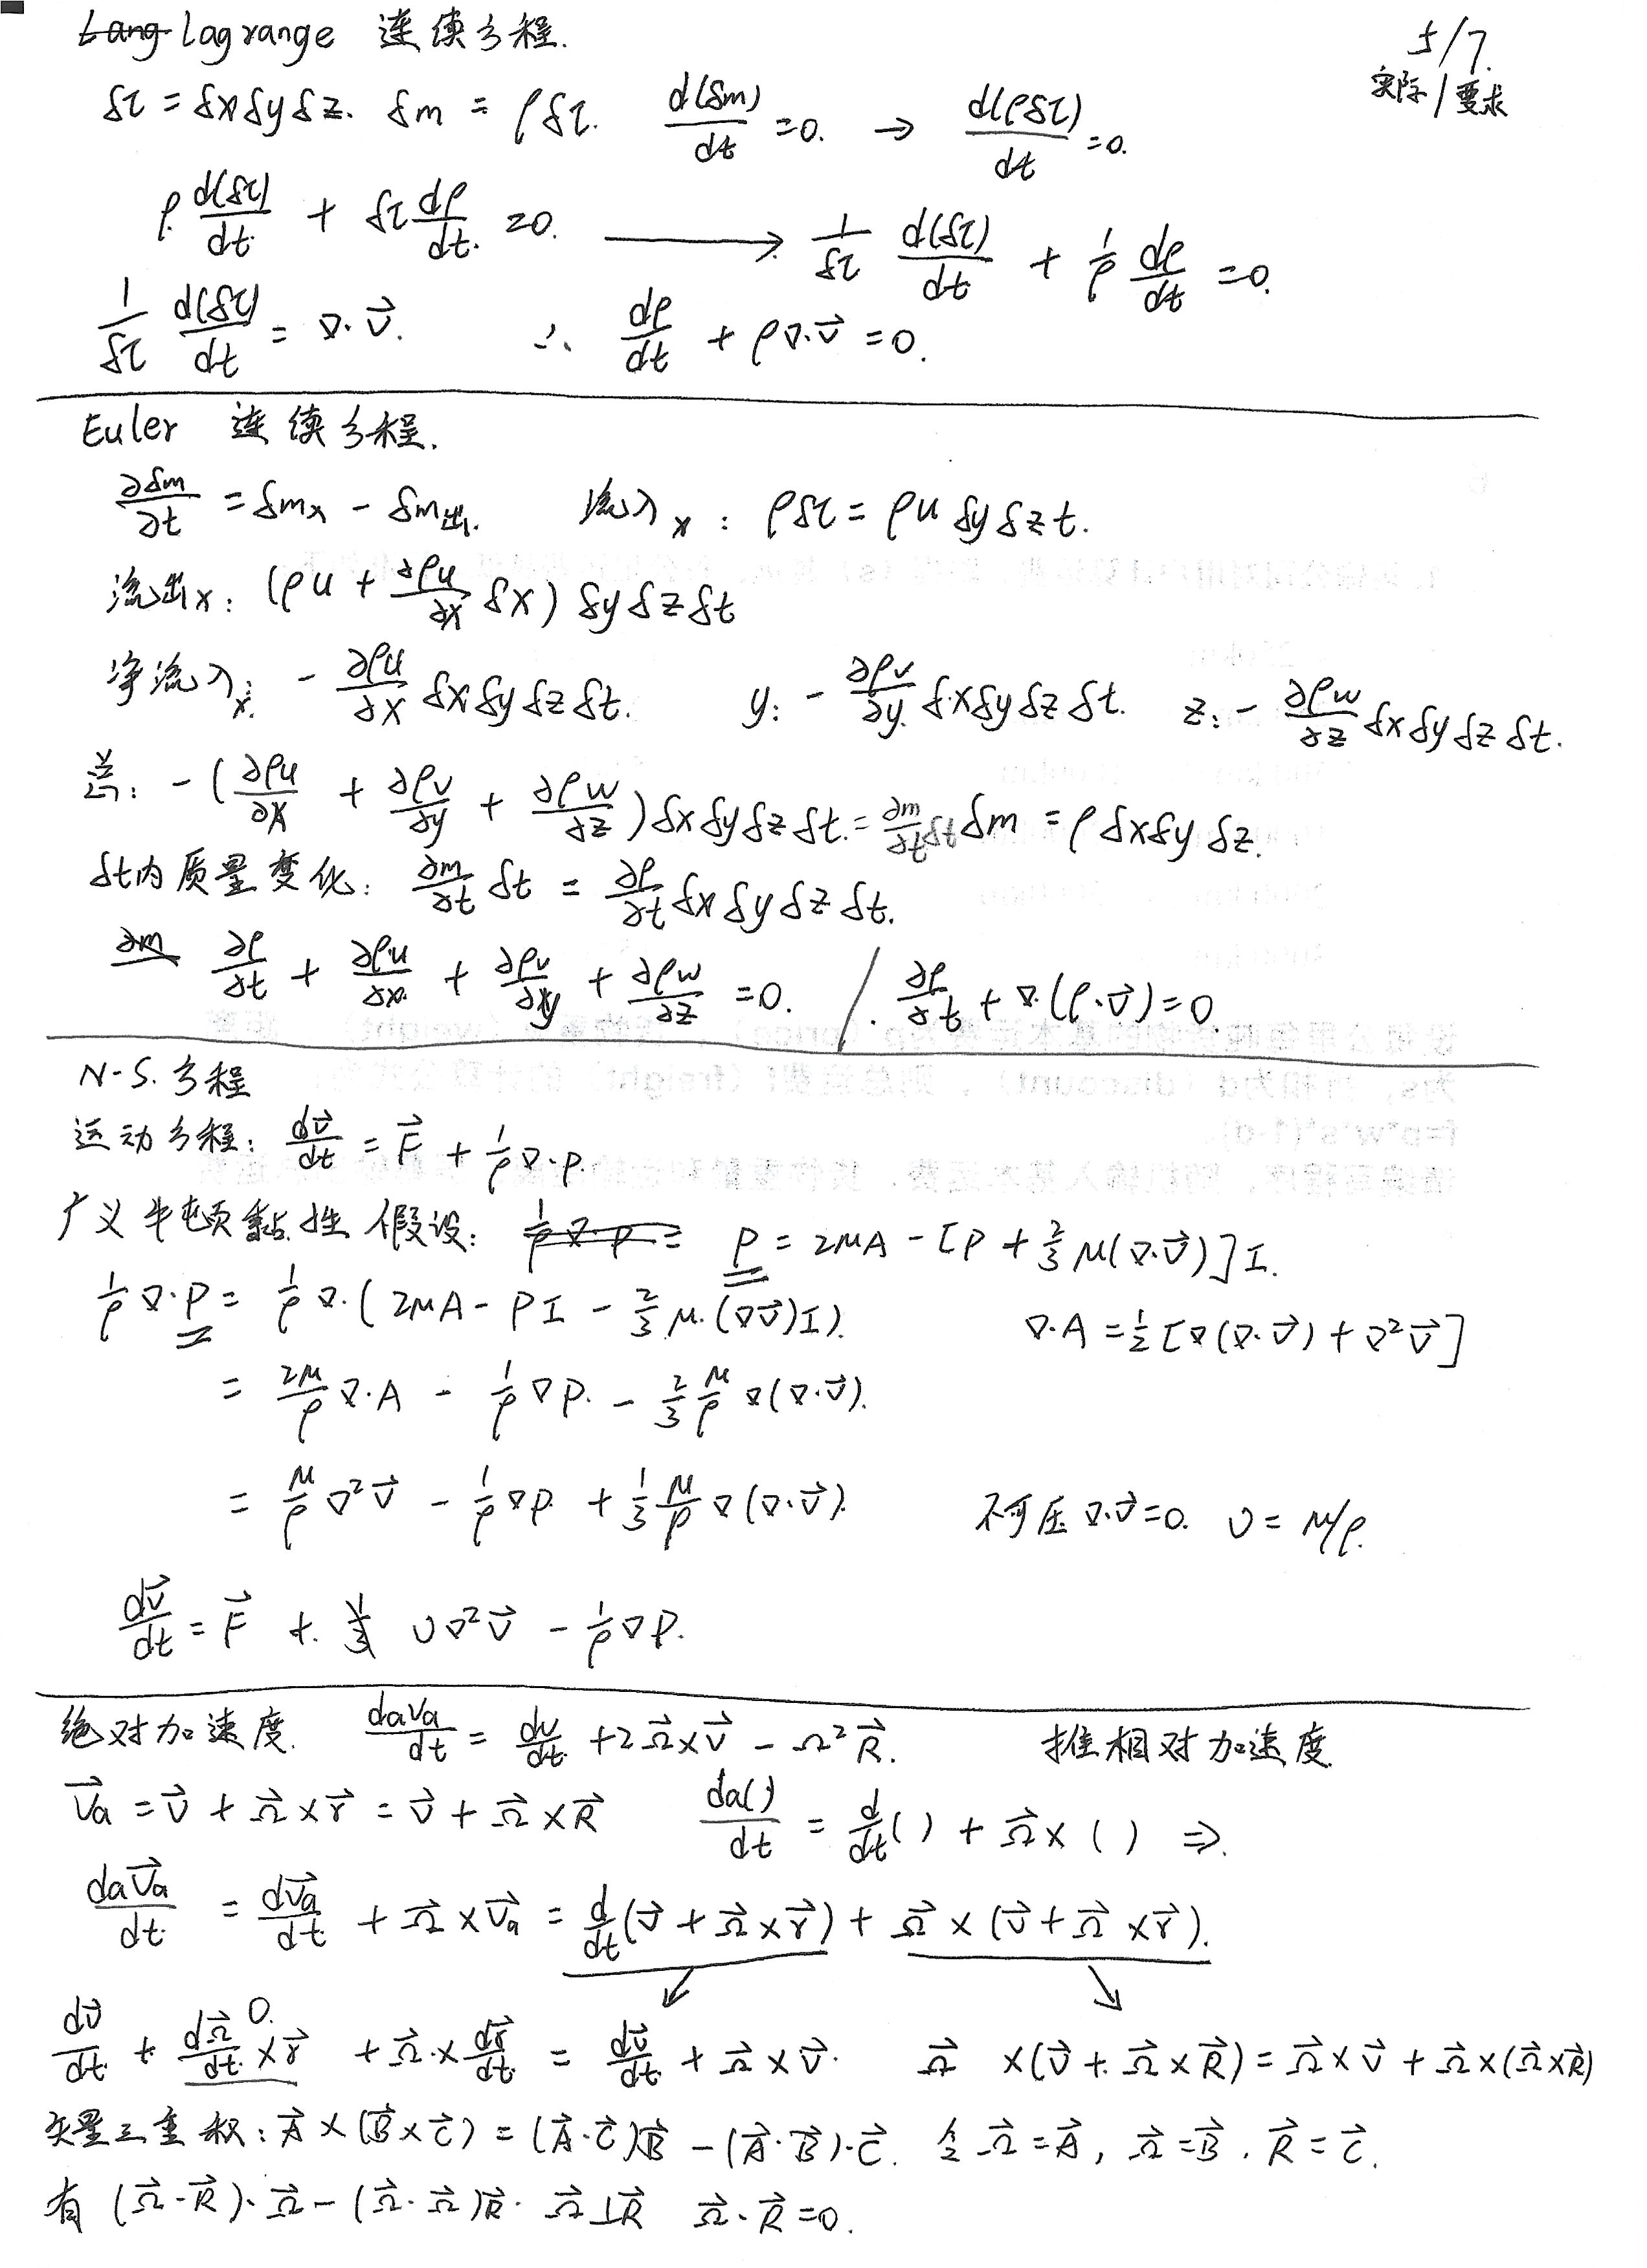 Lagrange 连续方程.
5/7.
实际/要求
δτ = δxδyδz. δm = ρδτ. d(δm)/dt = 0. → d(ρδτ)/dt = 0.
ρ d(δτ)/dt + δτ dρ/dt = 0. → 1/δτ d(δτ)/dt + 1/ρ dρ/dt = 0.
1/δτ d(δτ)/dt = ∇·v⃗. ∴ dρ/dt + ρ∇·v⃗ = 0.
Euler 连续方程.
∂δm/∂t = δm入 - δm出. 流入x: ρδτ = ρu δyδzt.
流出x: (ρu + ∂ρu/∂x δx) δyδzδt
净流入x: - ∂ρu/∂x δxδyδzδt. y: - ∂ρv/∂y δxδyδzδt. z: - ∂ρw/∂z δxδyδzδt.
总: - (∂ρu/∂x + ∂ρv/∂y + ∂ρw/∂z) δxδyδzδt. = ∂m/∂t δt δm = ρδxδyδz.
δt内质量变化: ∂m/∂t δt = ∂ρ/∂t δxδyδzδt.
∂ρ/∂t + ∂ρu/∂x + ∂ρv/∂y + ∂ρw/∂z = 0. / ∂ρ/∂t + ∇·(ρ·v⃗) = 0
N-S. 方程
运动方程: dv⃗/dt = F⃗ + 1/ρ ∇·P.
广义牛顿黏性假设: P = 2μA - [P + 2/3 μ(∇·v⃗)]I.
1/ρ ∇·P = 1/ρ ∇·(2μA - PI - 2/3 μ·(∇v⃗)I). ∇·A = 1/2 [∇(∇·v⃗) + ∇²v⃗]
= 2μ/ρ ∇·A - 1/ρ ∇P. - 2/3 μ/ρ ∇(∇·v⃗).
= μ/ρ ∇²v⃗ - 1/ρ ∇P + 1/3 μ/ρ ∇(∇·v⃗). 不可压 ∇·v⃗ = 0. υ = μ/ρ.
dv⃗/dt = F⃗ + υ∇²v⃗ - 1/ρ ∇P.
绝对加速度. daVa/dt = dv/dt + 2Ω⃗×v⃗ - Ω²R⃗. 推相对加速度
V⃗a = v⃗ + Ω⃗×r⃗ = v⃗ + Ω⃗×R⃗ da()/dt = d/dt() + Ω⃗×() ⇒
daV⃗a/dt = dV⃗a/dt + Ω⃗×V⃗a = d/dt(v⃗ + Ω⃗×r⃗) + Ω⃗×(v⃗ + Ω⃗×r⃗).
dv⃗/dt + dΩ⃗/dt×r⃗ 0 + Ω⃗×dr⃗/dt = dv⃗/dt + Ω⃗×v⃗. Ω⃗ ×(v⃗ + Ω⃗×R⃗) = Ω⃗×v⃗ + Ω⃗×(Ω⃗×R⃗)
矢量三重积: A⃗×(B⃗×C⃗) = (A⃗·C⃗)B⃗ - (A⃗·B⃗)·C⃗. 令 Ω⃗ = A⃗, Ω⃗ = B⃗. R⃗ = C⃗.
有 (Ω⃗·R⃗)·Ω⃗ - (Ω⃗·Ω⃗)R⃗. Ω⃗⊥R⃗ Ω⃗·R⃗ = 0.